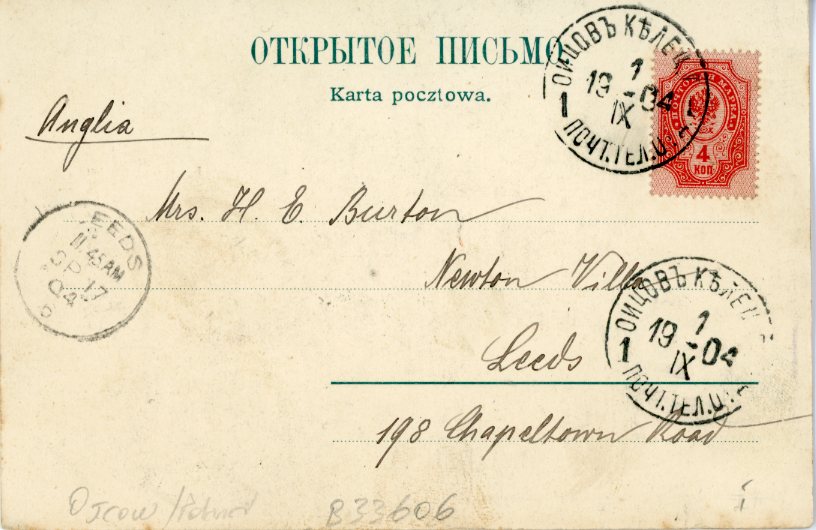 ОТКРЫТОЕ ПИСЬМО
Karta pocztowa.
ОЙЦОВЪ КѢЛЕЦ
1
19 - 04
IX
1
ПОЧТ.ТЕЛ.О
ПОЧТОВАЯ МАРКА
4
КОП
Anglia
Mrs. H. E. Burton
LEEDS
11.45 AM
SP 17
04
Newton Villa
ОЙЦОВЪ КѢЛЕЦ
1
19 - 04
IX
1
ПОЧТ.ТЕЛ.О
Leeds
198 Chapeltown Road
Ojcow
B33606